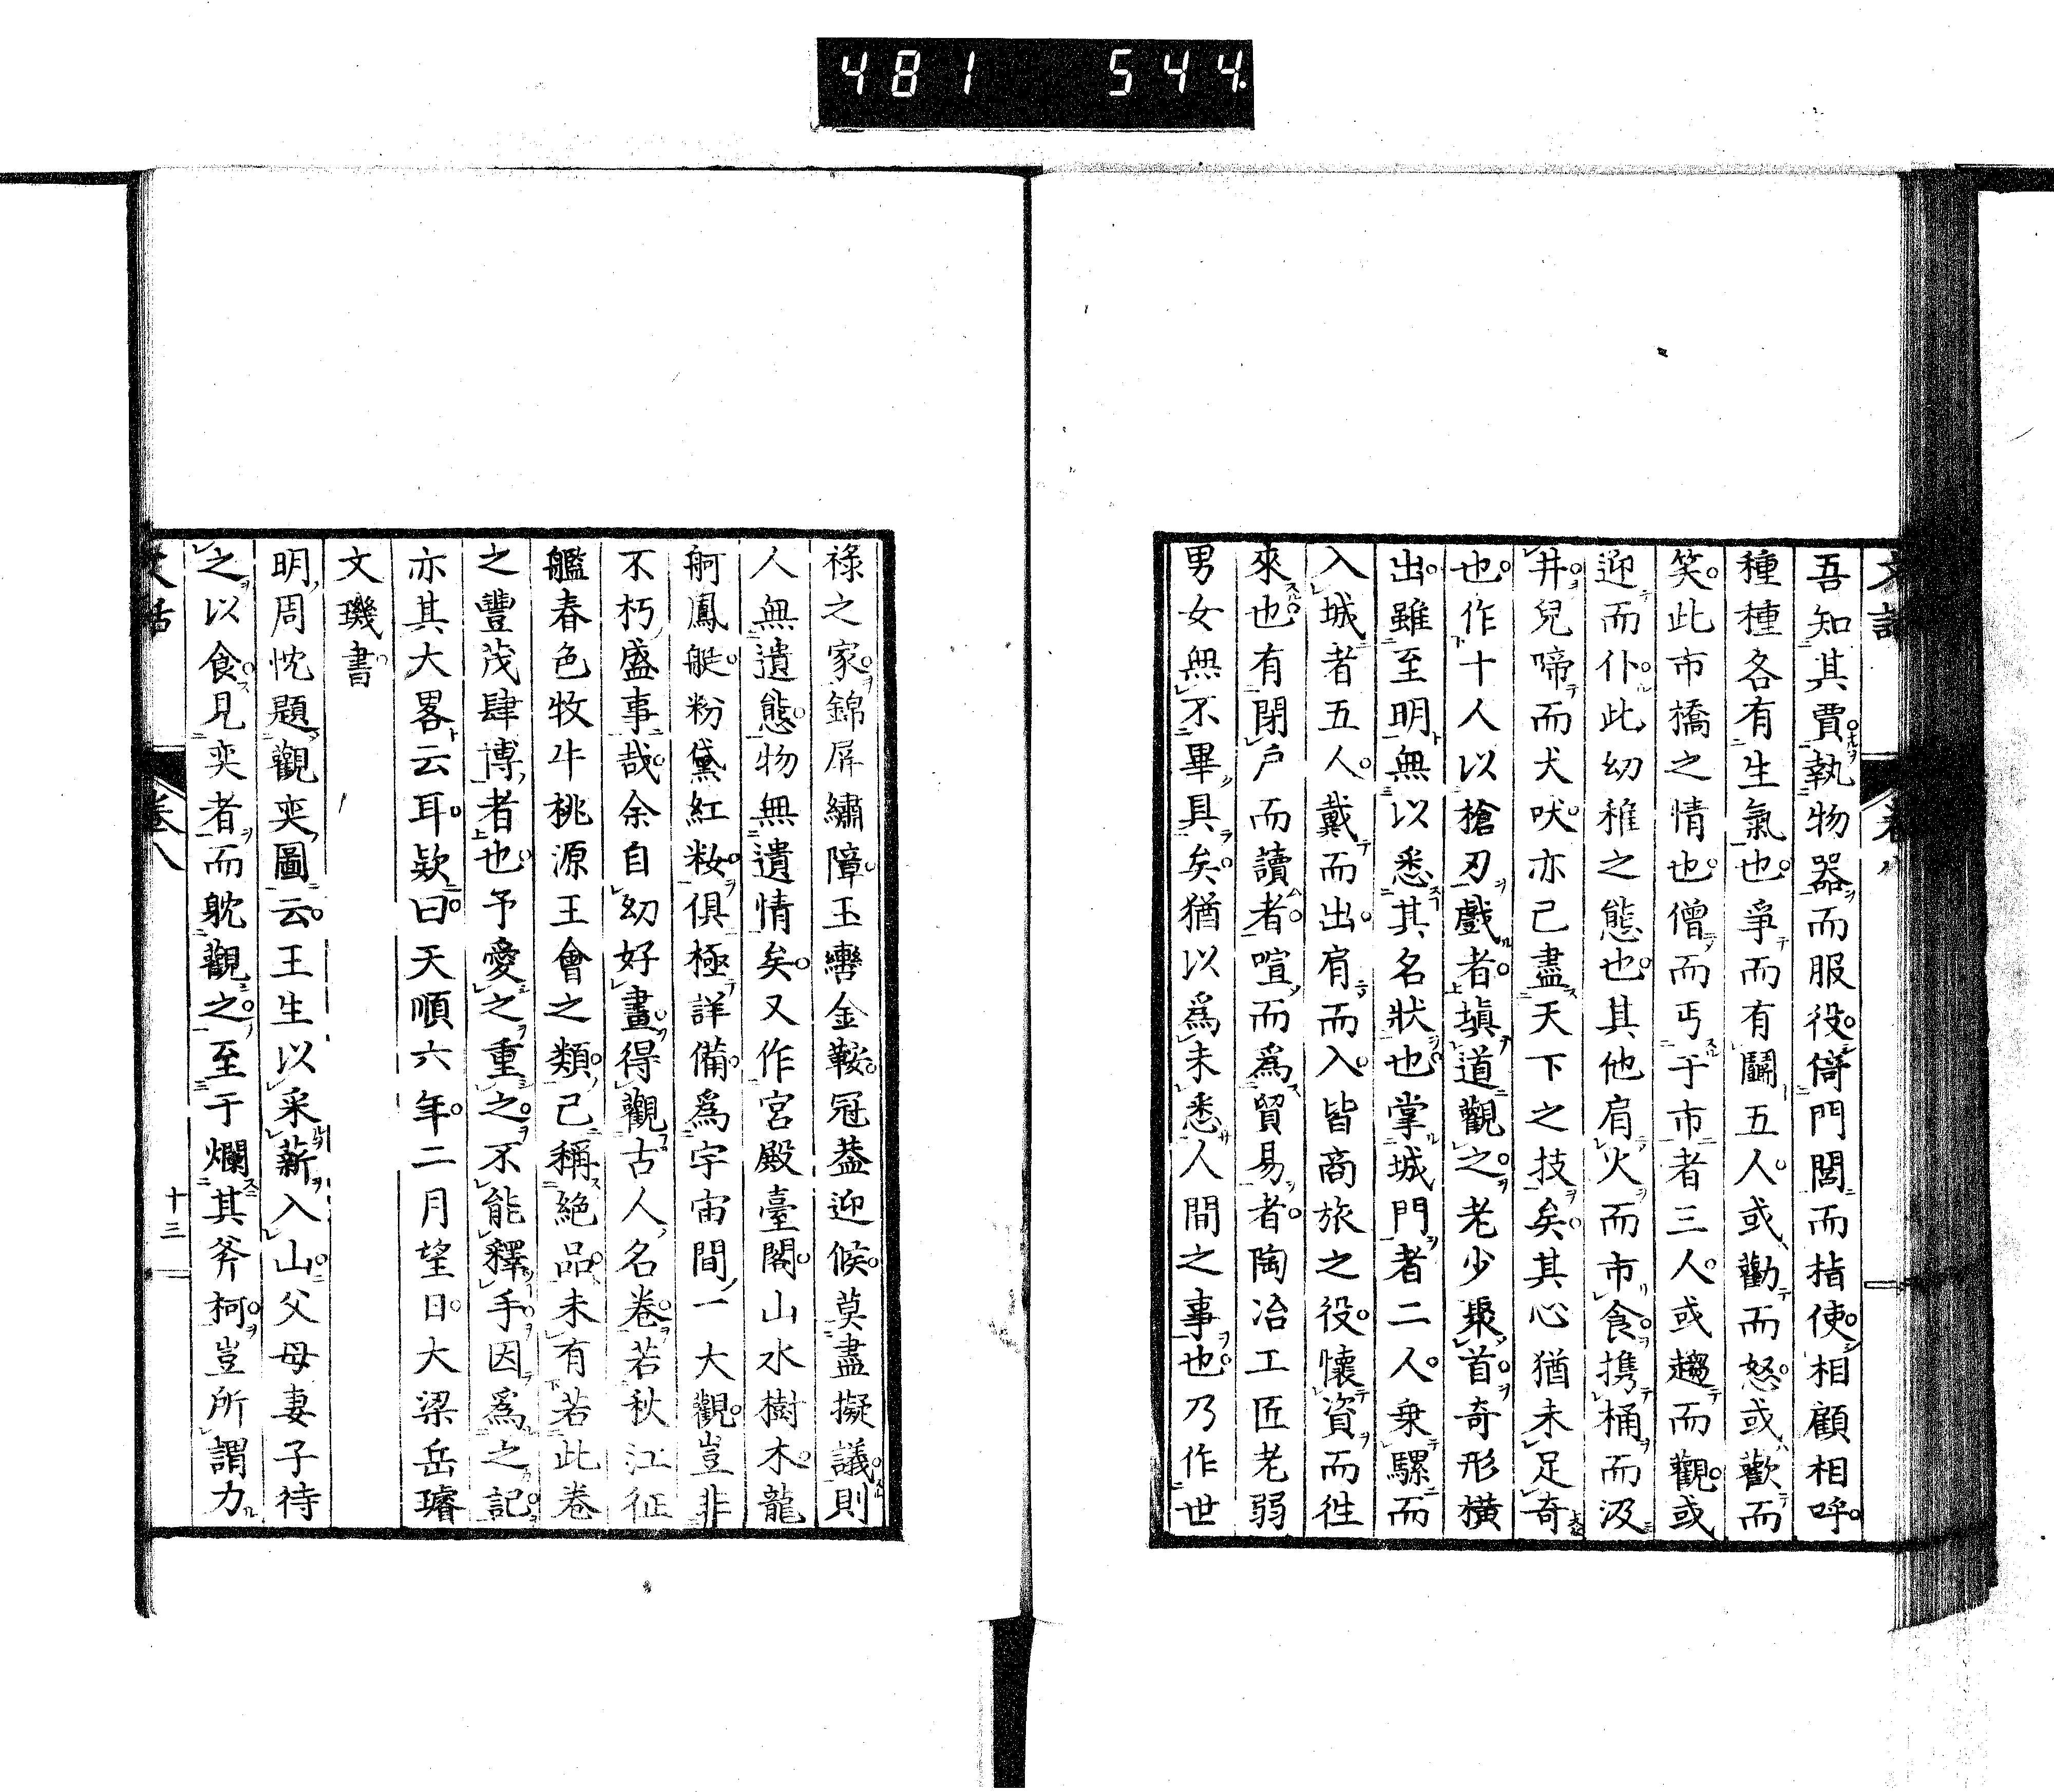 481 544
吾知其賈執物器而服役倚門閭而指使相顧相呼
種種各有生氣也爭而有鬪五人或勸而怒或歡而
笑此市橋之情也僧而丐于市者三人或趨而觀或
迎而仆此幼稚之態也其他肩火而市食携桶而汲
井兒啼而犬吠亦已盡天下之技矣其心猶未足奇
也作十人以槍刃戲者塡道觀之老少聚首奇形橫
出雖至明無以悉其名狀也掌城門者二人乗騾而
入城者五人人戴而出肩而入皆商旅之役懷資而徃
來也有閉戸而讀者喧而爲貿易者陶冶工匠老弱
男女無不畢具矣猶以爲未悉人間之事也乃作世
祿之家錦屏繡障玉轡金鞍冠葢迎候莫盡擬議則
人無遺態物無遺情矣又作宮殿臺閣山水樹木龍
舸鳳艇粉黛紅粧俱極詳備爲宇宙間一大觀豈非
不朽盛事哉余自幼好畫得觀古人名卷若秋江征
艦春色牧牛桃源王會之類已稱絕品未有若此卷
之豐茂肆博者也予愛之重之不能釋手因爲之記
亦其大畧云耳欵曰天順六年二月望日大梁岳璿
文璣書
明周忱題觀奕圖云王生以采薪入山父母妻子待
之以食見奕者而躭觀之至于爛其斧柯豈所謂力
文話 卷八 十三